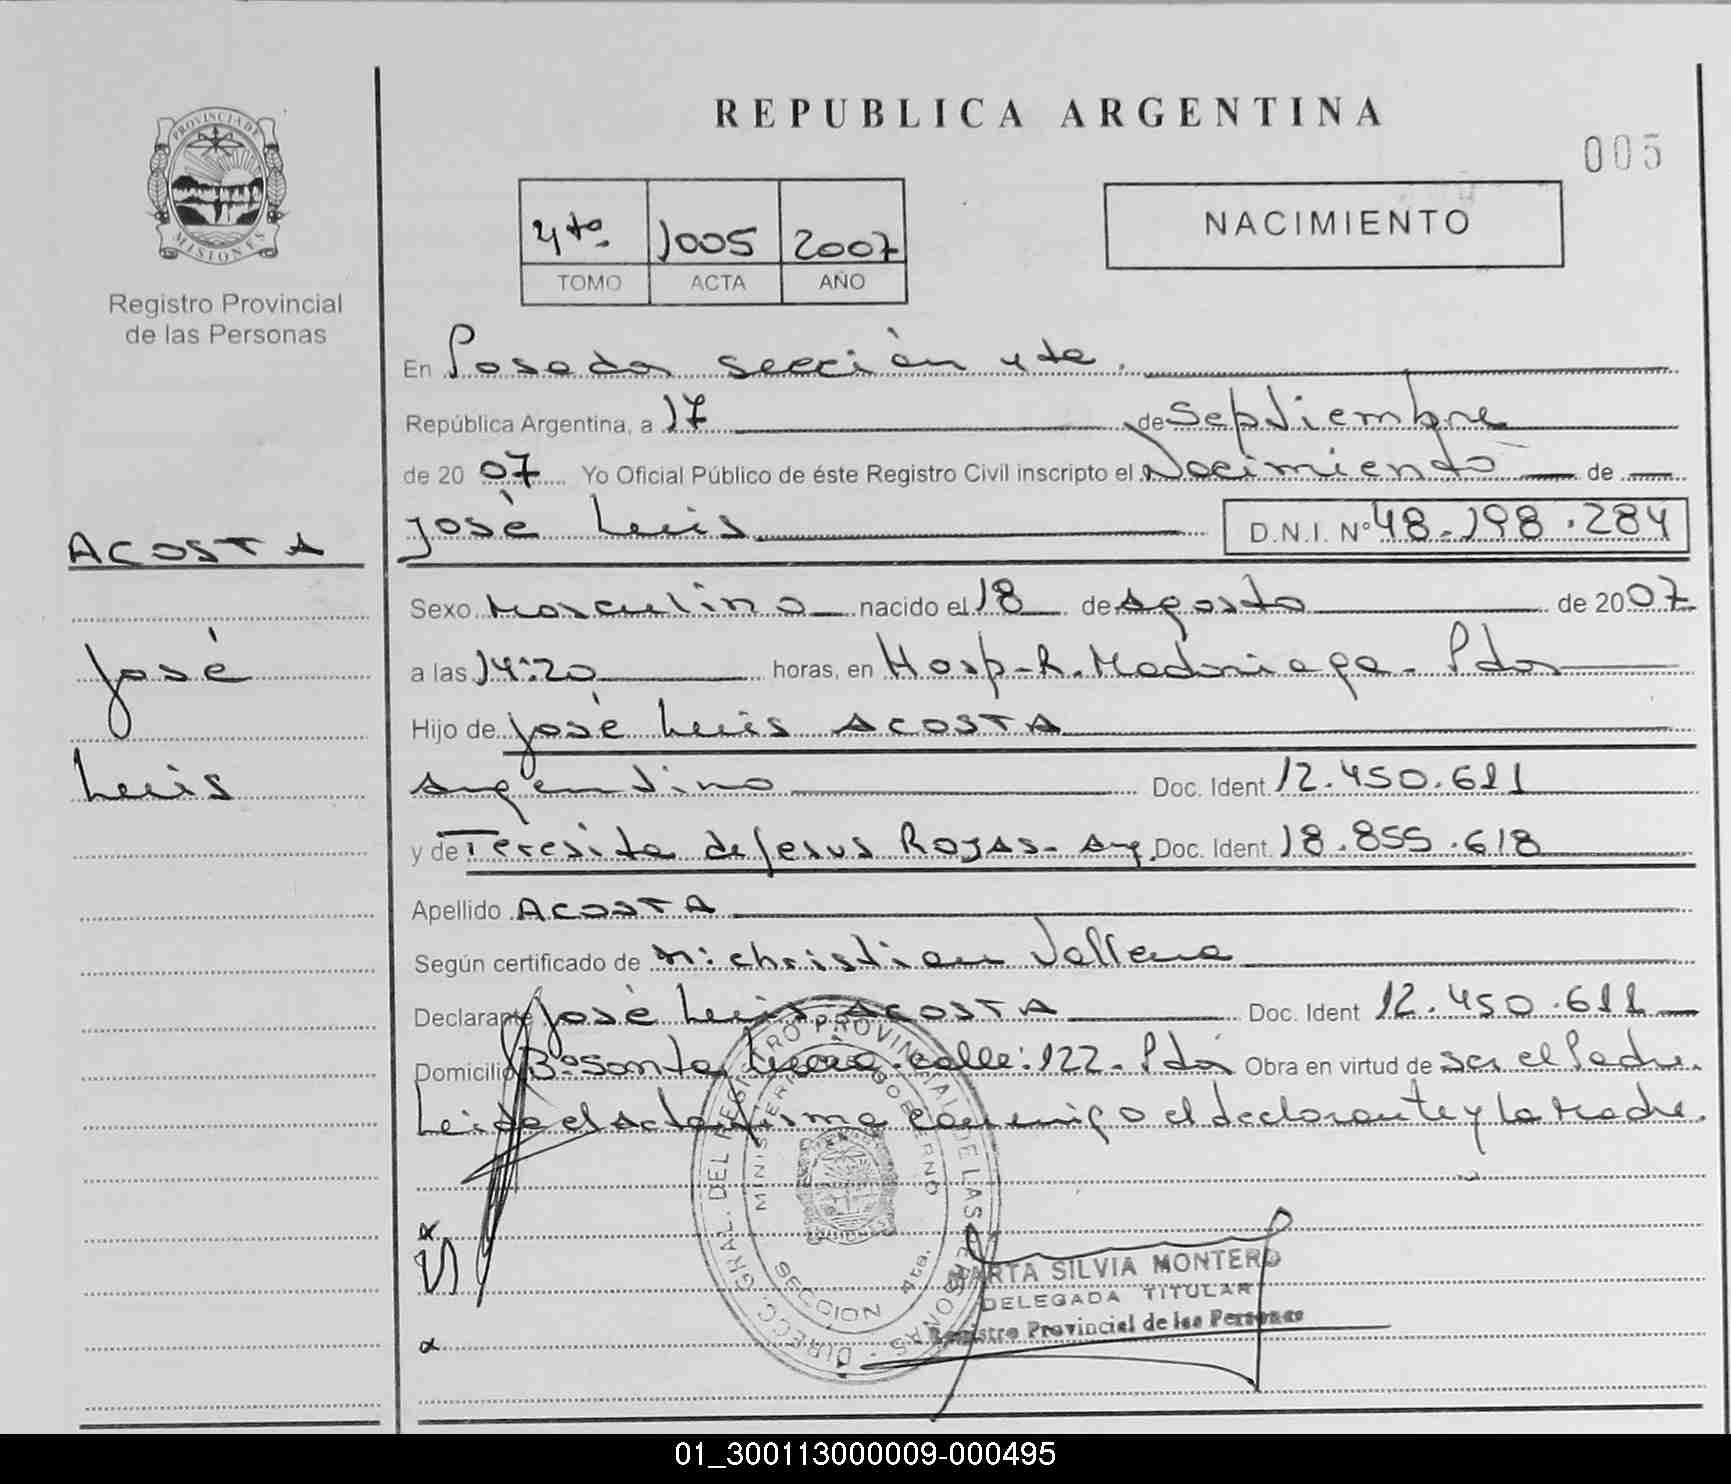 REPUBLICA ARGENTINA
005
PROVINCIA DE
MISIONES
Registro Provincial
de las Personas
4to. 1005 2007
TOMO ACTA AÑO
NACIMIENTO
En Posadas sección 4ta.
República Argentina, a 17 de Septiembre
de 2007 Yo Oficial Público de éste Registro Civil inscripto el Nacimiento de
ACOSTA
José Luis D.N.I. Nº 48.198.284
Sexo Masculino nacido el 18 de Agosto de 2007
José
a las 14:20 horas, en Hosp. R. Madariaga - Pdas
Hijo de José Luis ACOSTA
Luis
Argentino Doc. Ident. 12.450.611
y de Teresita de Jesus ROJAS - Arg. Doc. Ident. 18.855.618
Apellido ACOSTA
Según certificado de christian
Declarante José Luis ACOSTA Doc. Ident 12.450.611
Domicilio Bº Santa calle: 122 - Pdas Obra en virtud de ser el Padre.
Leida el Acta firma conmigo el declarante y la Madre.
DIRECC. GRAL. DEL REGISTRO PROVINCIAL DE LAS PERSONAS
MINISTERIO GOBIERNO
SECCION 4ta.
MARTA SILVIA MONTERO
DELEGADA TITULAR
Registro Provincial de las Personas
01_300113000009-000495